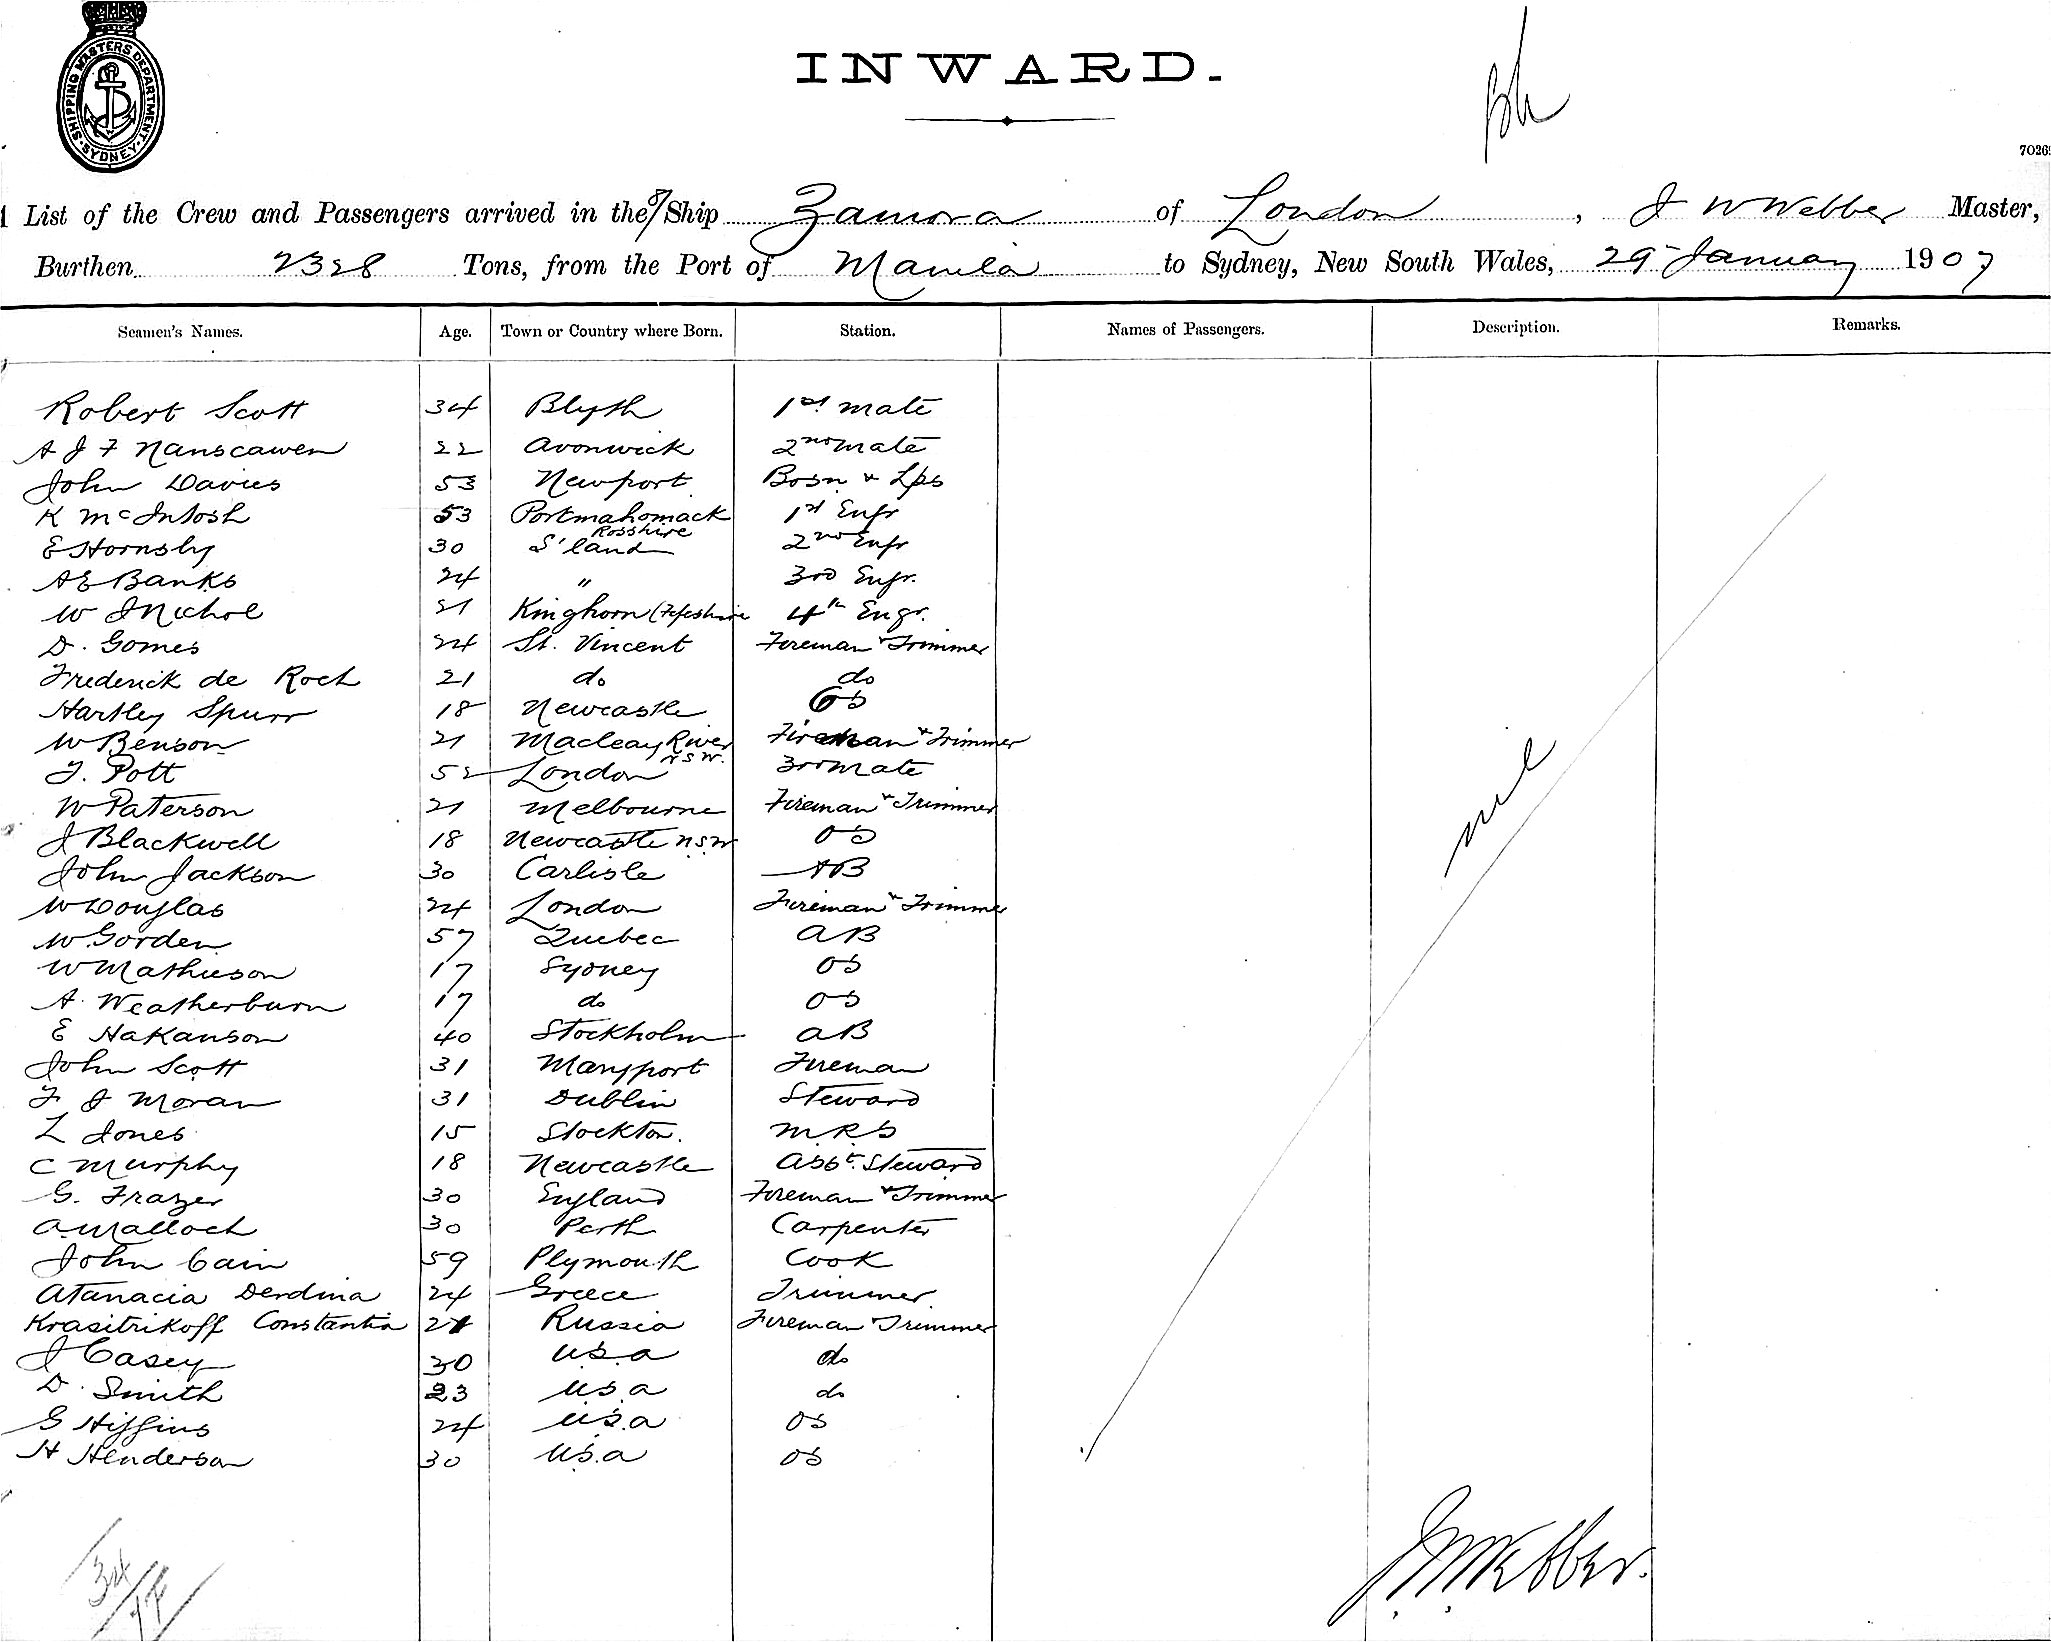 SHIPPING MASTERS DEPARTMENT · SYDNEY ·
INWARD.
7026
List of the Crew and Passengers arrived in the S/Ship Zamora of London, J W Webber Master,
Burthen 2328 Tons, from the Port of Manila to Sydney, New South Wales, 29 January 1907
Seamen's Names. Age. Town or Country where Born. Station. Names of Passengers. Description. Remarks.
Robert Scott 34 Blyth 1st mate
A J F Nanscawen 22 Avonwick 2nd mate
John Davies 53 Newport Bosn & Lps
K McIntosh 53 Portmahomack Rosshire 1st Engr
E Hornsby 30 S'land 2nd Engr
A E Banks 24 " 3rd Engr.
W J Nichol 21 Kinghorn (Fifeshire 4th Engr.
D. Gomes 24 St. Vincent Fireman & Trimmer
Frederick de Roch 21 do do
Hartley Spurr 18 Newcastle OS
W Benson 21 Macleay River NSW. Fireman & Trimmer
T. Pott 52 London 3rd mate
W Paterson 21 Melbourne Fireman & Trimmer
J Blackwell 18 Newcastle N.S.W OS
John Jackson 30 Carlisle AB
W Douglas 24 London Fireman & Trimmer
W Gorden 57 Quebec AB
W Mathieson 17 Sydney OS
A. Weatherburn 17 do OS
E Hakanson 40 Stockholm AB
John Scott 31 Maryport Fireman
F J Moran 31 Dublin Steward
L Jones 15 Stockton. M.R.S
C Murphy 18 Newcastle Asst. Steward
G. Frazer 30 England Fireman & Trimmer
A. Malloch 30 Perth Carpenter
John Cain 59 Plymouth Cook
Atanacia Derdina 24 Greece Trimmer
Krasitrikoff Constantia 21 Russia Fireman & Trimmer
J Casey 30 U.S.A do
D. Smith 23 U.S.A do
G Higgins 24 U.S.A OS
H Henderson 30 U.S.A OS
nil
34
J. W. Webber.